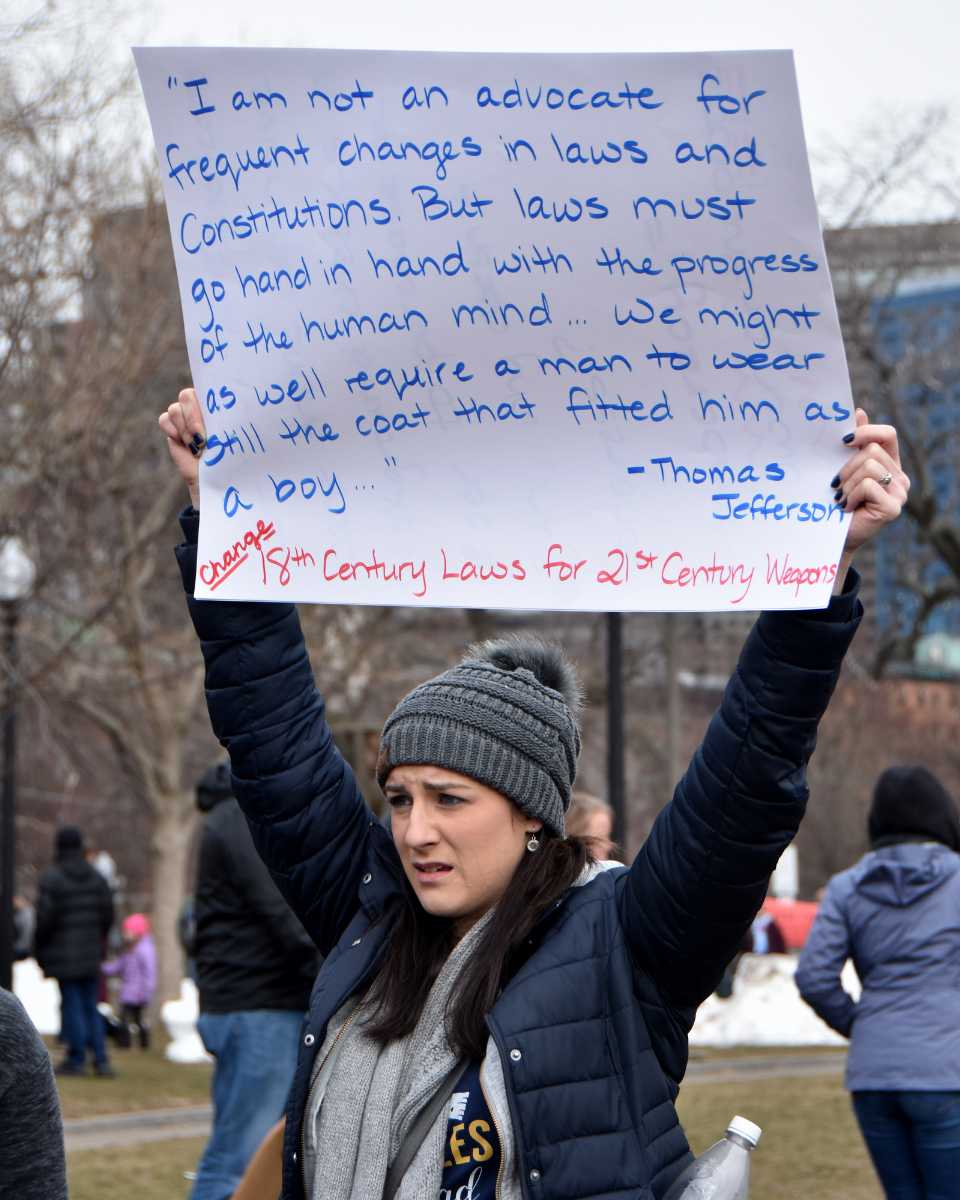 "I am not an advocate for
frequent changes in laws and
Constitutions. But laws must
go hand in hand with the progress
of the human mind... We might
as well require a man to wear
still the coat that fitted him as
a boy..."
-Thomas
Jefferson
change 18th Century Laws for 21st Century Weapons
LES
ad